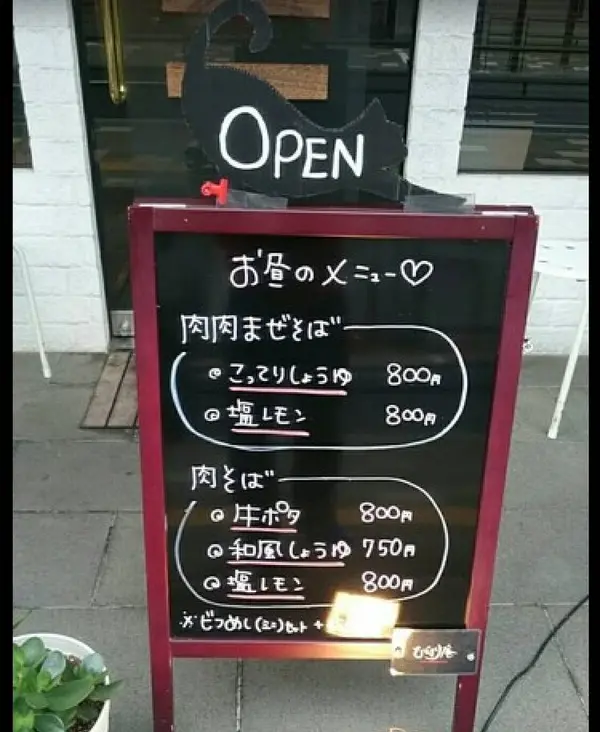 OPEN
お昼のメニュー♡
肉肉まぜそば
@ こってりしょうゆ 800円
@ 塩レモン 800円
肉そば
@ 牛ポタ 800円
@ 和風しょうゆ 750円
@ 塩レモン 800円
※ビフめし(ミニ)セット +